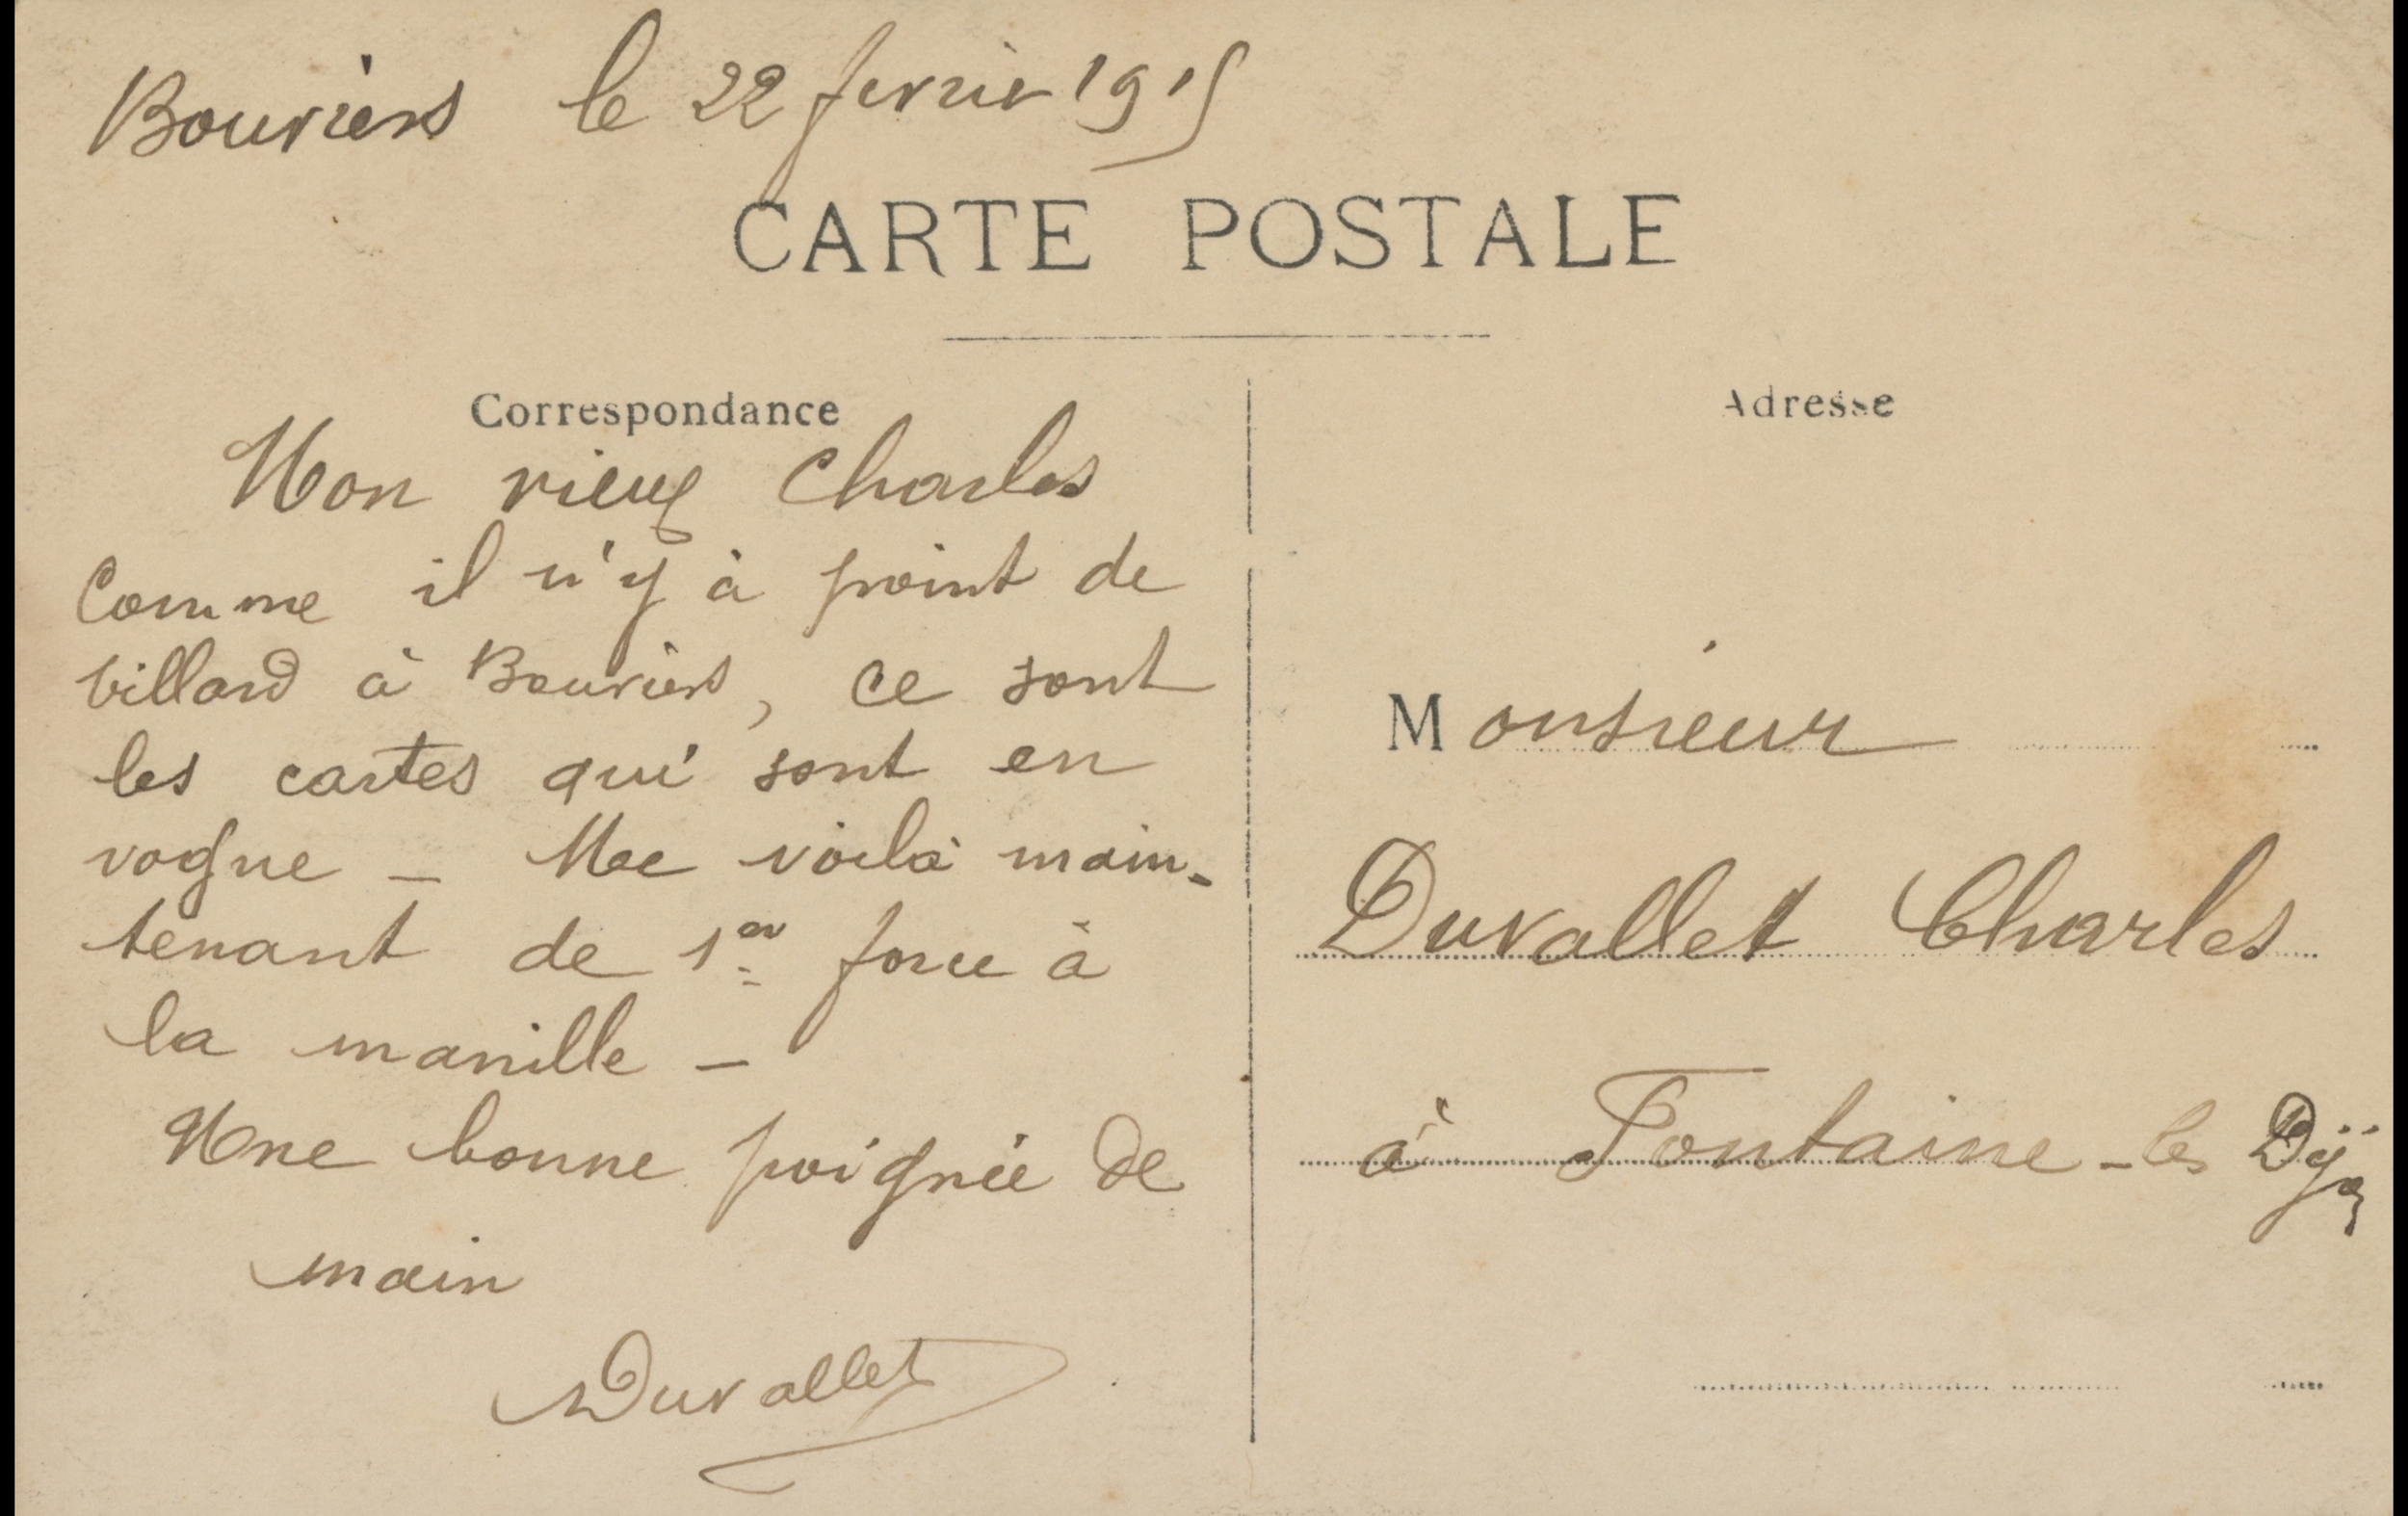 Bouviers le 22 fevrier 1915
CARTE POSTALE
Correspondance
Mon vieux Charles
Comme il n'y à point de
billard à Bouviers, ce sont
les cartes qui sont en
vogue - Me voilà main-
tenant de 1er force à
la manille -
Une bonne poignée de
main
Duvallet
Adresse
Monsieur
Duvallet Charles
à Fontaine-les Dijon